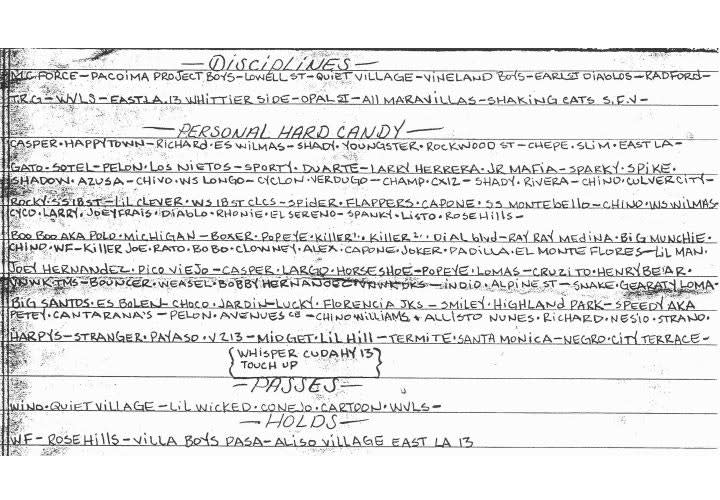 —DISCIPLINES—
M.C. FORCE—PACOIMA PROJECT BOYS—LOWELL ST—QUIET VILLAGE—VINELAND BOYS—EARL ST DIABLOS—RADFORD—
T.R.G—WVLS—EAST LA. 13 WHITTIER SIDE—OPAL ST—All MARAVILLAS—SHAKING CATS S.F.V—
—PERSONAL HARD CANDY—
CASPER·HAPPYTOWN—RICHARD·ES WILMAS—SHADY·YOUNGSTER·ROCKWOOD ST—CHEPE·SLIM·EAST LA—
GATO·SOTEL—PELON·LOS NIETOS—SPORTY·DUARTE—LARRY HERRERA·JR MAFIA—SPARKY·SPIKE·
SHADOW·AZUSA—CHIVO·WS LONGO—CYCLON·VERDUGO—CHAMP·CX12—SHADY·RIVERA—CHINO·CULVER CITY—
ROCKY·SS 18 ST—LIL CLEVER·WS 18 ST CLCS—SPIDER·FLAPPERS·CAPONE·SS MONTEBELLO—CHINO·WS WILMAS·
CYCO·LARRY·JOEY FRAIS·DIABLO·RHONIE·EL SERENO—SPANKY·LISTO·ROSE HILLS—
BOO BOO AKA POLO·MICHIGAN—BOXER·POPEYE·KILLER 1·KILLER 2·DIAL blvd—RAY RAY MEDINA·BIG MUNCHIE·
CHINO·WF—KILLER JOE·RATO·BOBO·CLOWNEY·ALEX·CAPONE·JOKER·PADILLA·EL MONTE FLORES—LIL MAN·
JOEY HERNANDEZ·PICO VIEJO—CASPER·LARGO·HORSESHOE—POPEYE·LOMAS—CRUZITO·HENRY BEAR·
VNWK TMS—BOUNCER·WEASEL·BOBBY HERNANDEZ·VNWK DKS—INDIO·ALPINE ST—SNAKE·GEARATY LOMA·
BIG SANTOS·ES BOLEN—CHOCO·JARDIN—LUCKY·FLORENCIA JKS—SMILEY·HIGHLAND PARK—SPEEDY AKA
PETEY·CANTARANA'S—PELON·AVENUES—CHINO WILLIAMS & ALLISTO NUNES·RICHARD·NESIO·STRANO·
HARPYS—STRANGER·PAYASO·V213—MIDGET·LIL HILL—TERMITE·SANTA MONICA—NEGRO·CITY TERRACE—
{WHISPER CUDAHY 13}
TOUCH UP
—PASSES—
WINO·QUIET VILLAGE—LIL WICKED·CONEJO·CARTOON·WVLS—
—HOLDS—
WF—ROSE HILLS—VILLA BOYS PASA—ALISO VILLAGE EAST LA 13